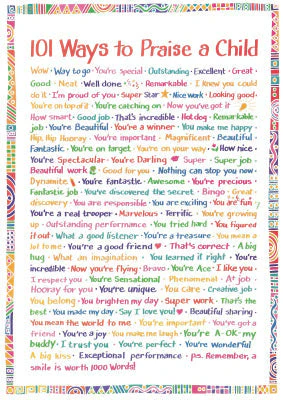 101 Ways to Praise a Child
Wow • Way to go • You're special • Outstanding • Excellent • Great
Good • Neat • Well done • Remarkable • I knew you could
do it • I'm proud of you • Super Star • Nice work • Looking good •
You're on top of it • You're catching on • Now you've got it
How smart • Good job • That's incredible • Hot dog • Remarkable
job • You're Beautiful • You're a winner • You make me happy •
Hip, Hip, Hooray • You're important • Magnificent • Beautiful •
Fantastic • You're on target • You're on your way • How nice •
You're Spectacular • You're Darling • Super • Super job •
Beautiful work • Good for you • Nothing can stop you now •
Dynamite • You're fantastic • Awesome • You're precious •
Fantastic job • You've discovered the secret • Bingo • Great
discovery • You are responsible • You are exciting • You are fun •
You're a real trooper • Marvelous • Terrific • You're growing
up • Outstanding performance • You tried hard • You figured
it out • What a good listener • You're a treasure • You mean a
lot to me • You're a good friend • That's correct • A big
hug • What an imagination • You learned it right • You're
incredible • Now you're flying • Bravo • You're Ace • I like you •
I respect you • You're Sensational • Phenomenal • A+ job •
Hooray for you • You're unique • You care • Creative job •
You belong • You brighten my day • Super work • That's the
best • You made my day • Say I love you • Beautiful sharing •
You mean the world to me • You're important • You've got a
friend • You're a joy • You make me laugh • You're A-OK • my
buddy • I trust you • You're perfect • You're Wonderful
A big kiss • Exceptional performance • p.s. Remember, a
smile is worth 1000 Words!